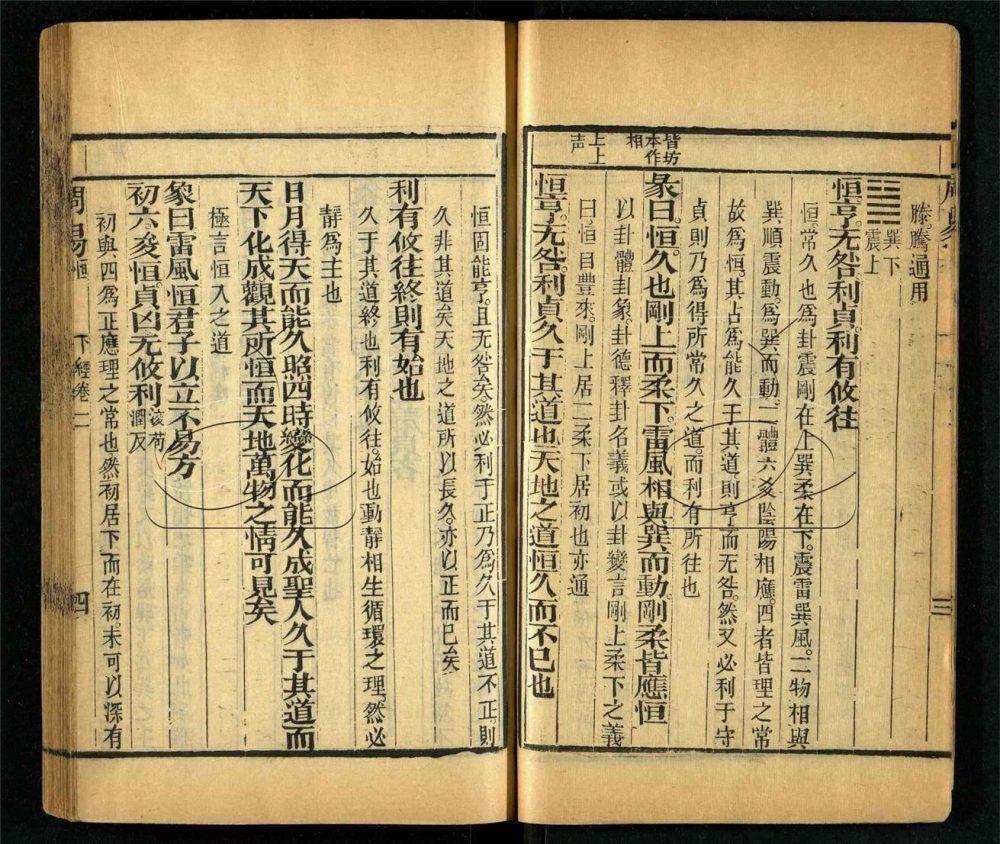 滕騰通用
巽下
震上
恒亨无咎利貞利有攸往
恒常久也爲卦震剛在上巽柔在下震雷巽風二物相與
巽順震動爲巽而動二體六爻陰陽相應四者皆理之常
故爲恒其占爲能久于其道則亨而无咎然又必利于守
貞則乃爲得所常久之道而利有所往也
彖曰恒久也剛上而柔下雷風相與巽而動剛柔皆應恒
皆坊
本作
相
以卦體卦象卦德釋卦名義或以卦變言剛上柔下之義
曰恒自豐來剛上居二柔下居初也亦通
上上
声
恒亨无咎利貞久于其道也天地之道恒久而不已也
恒固能亨且无咎矣然必利于正乃爲久于其道不正則
久非其道矣天地之道所以長久亦以正而已矣
利有攸往終則有始也
久于其道終也利有攸往始也動靜相生循環之理然必
靜爲主也
日月得天而能久照四時變化而能久成聖人久于其道而
天下化成觀其所恒而天地萬物之情可見矣
極言恒久之道
象曰雷風恒君子以立不易方
初六浚恒貞凶无攸利
浚荀
潤反
初與四爲正應理之常也然初居下而在初未可以深有
周易 恒 下經卷二 四
三